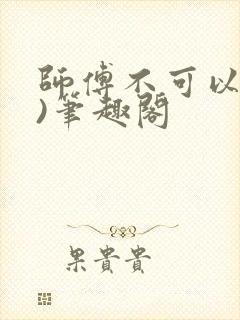 師傅不可以
)筆趣閣
果貴貴